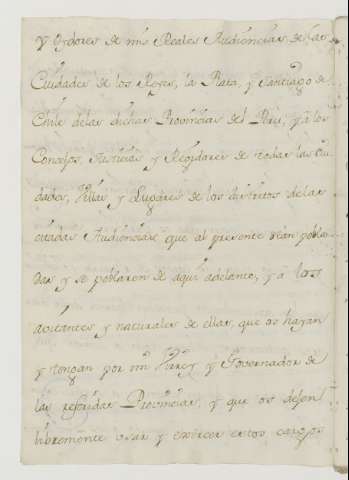 y Oydores de mis Reales Audiencias de las
Ciudades de los Reyes, la Plata, y Santiago de
Chile de las dichas Provincias del Perú, y á los
Concejos, Justicias y Regidores de todas las Ciu
dades, Villas y Lugares de los distritos de las
citadas Audiencias, que al presente están pobla
das y se poblaren de aquí adelante, y á los
avitantes y naturales de ellas, que os hayan
y tengan por mi Virrey, y Governador de
las referidas Provincias, y que os dejen
libremente usar y exercer estos cargos